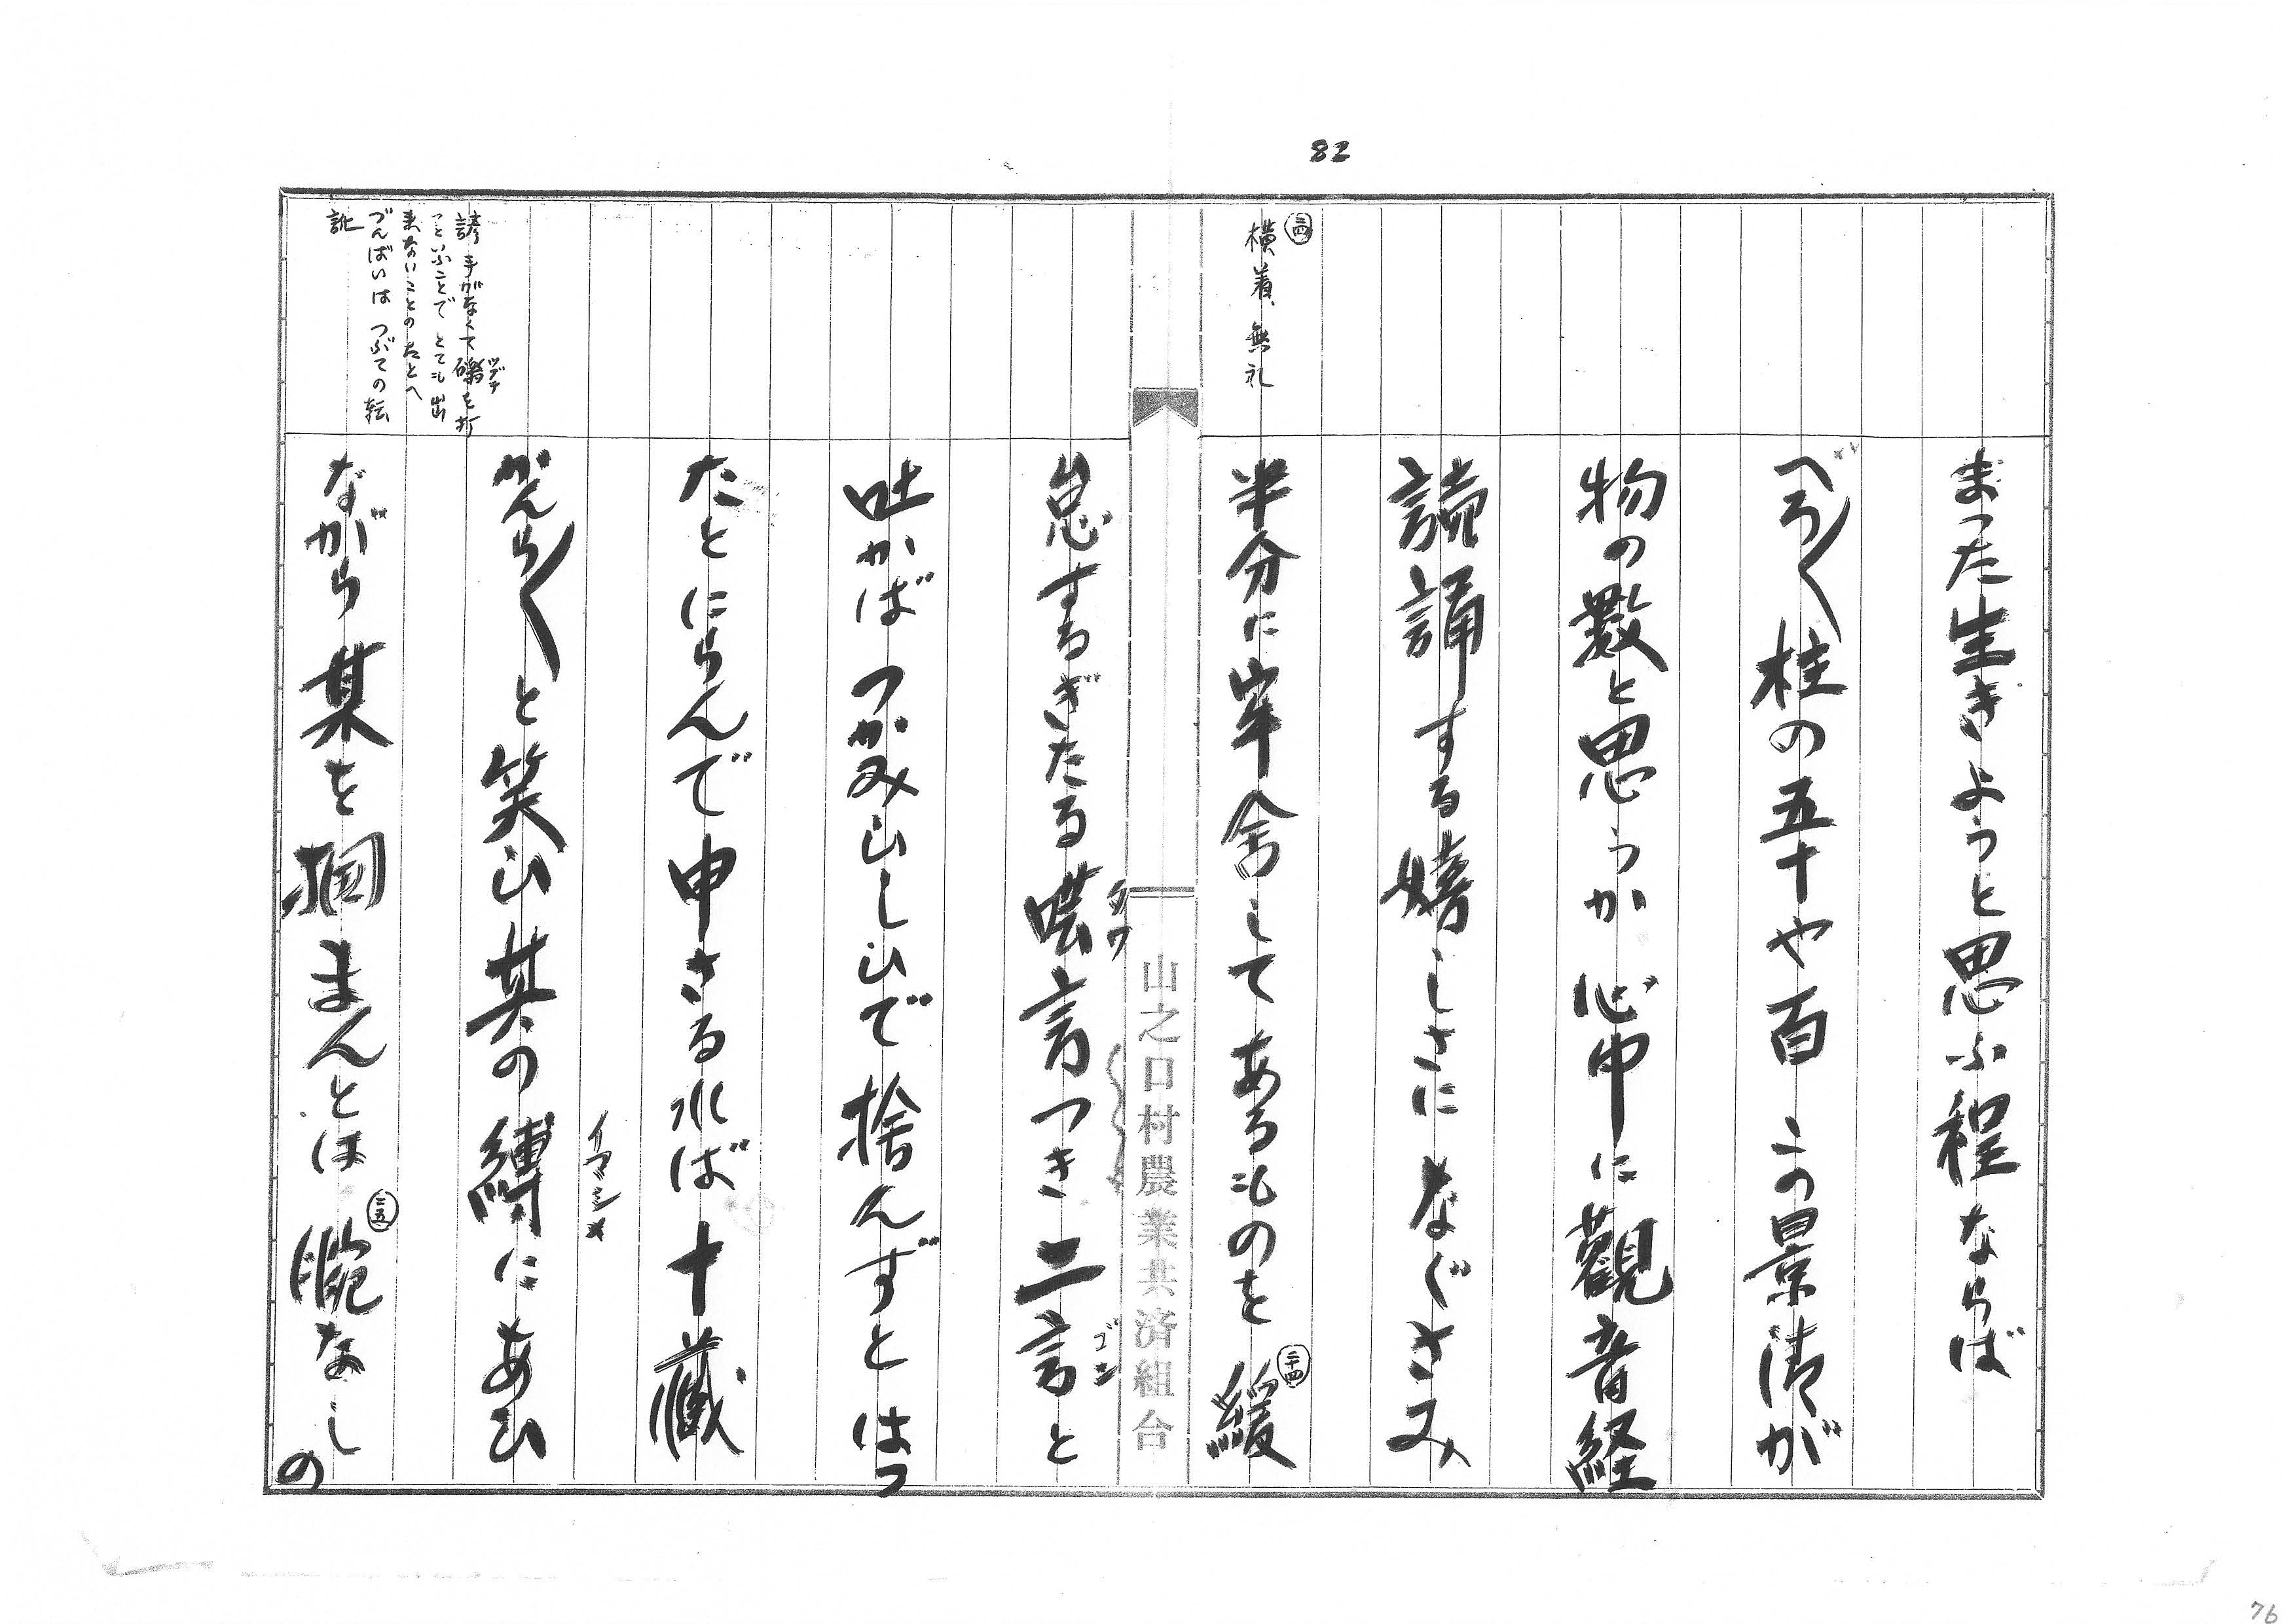 82
㉔
横着、無礼
まった生きようと思ふ程ならば
べろ〱柱の五十や百この景清が
物の数と思うか心中に觀音経
読誦する嬉しさになぐさみ
半分に牢舎してあるものを緩
二十四
怠するぎたる囈言つき二言と
タワ
ゴン
吐かばつかみひしひで捨んずとはつ
たとにらんで申さるれば十藏
からん〱と笑ひ其の縛にあひ
イマシメ
ながら某を掴まんとは腕なしの
二五
諺 手がなくて礫を打
ツブテ
つといふことで とても出
来ないことのたとへ
づんばいは つぶての転
訛
山之口村農業共済組合
76